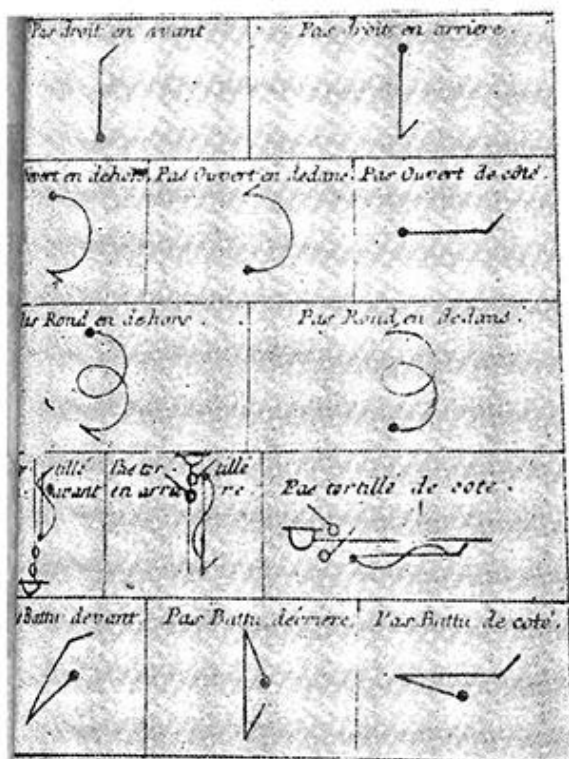 Pas droit en avant
Pas droit en arriere.
en dehors. Pas Ouvert en dedans. Pas Ouvert de côté.
Rond en dehors.
Pas Rond en dedans.
tillé
avant
Pas tor tillé
en arrie re.
Pas tortillé de coté.
Battu devant.
Pas Battu derriere. Pas Battu de coté.